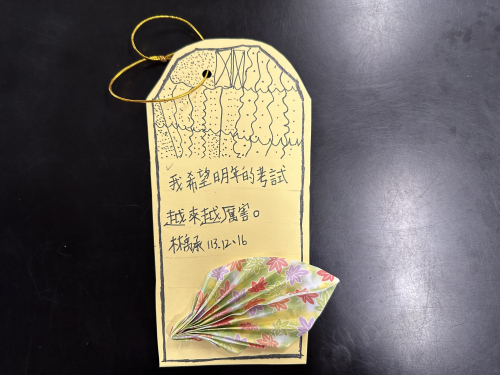 我希望明年的考試
越來越厲害。
林禹承 113.12.16